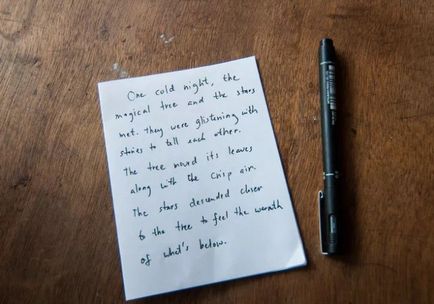 One cold night, the
magical tree and the stars
met. They were glistening with
stories to tell each other.
The tree moved its leaves
along with the crisp air.
The stars descended closer
to the tree to feel the warmth
of what's below.